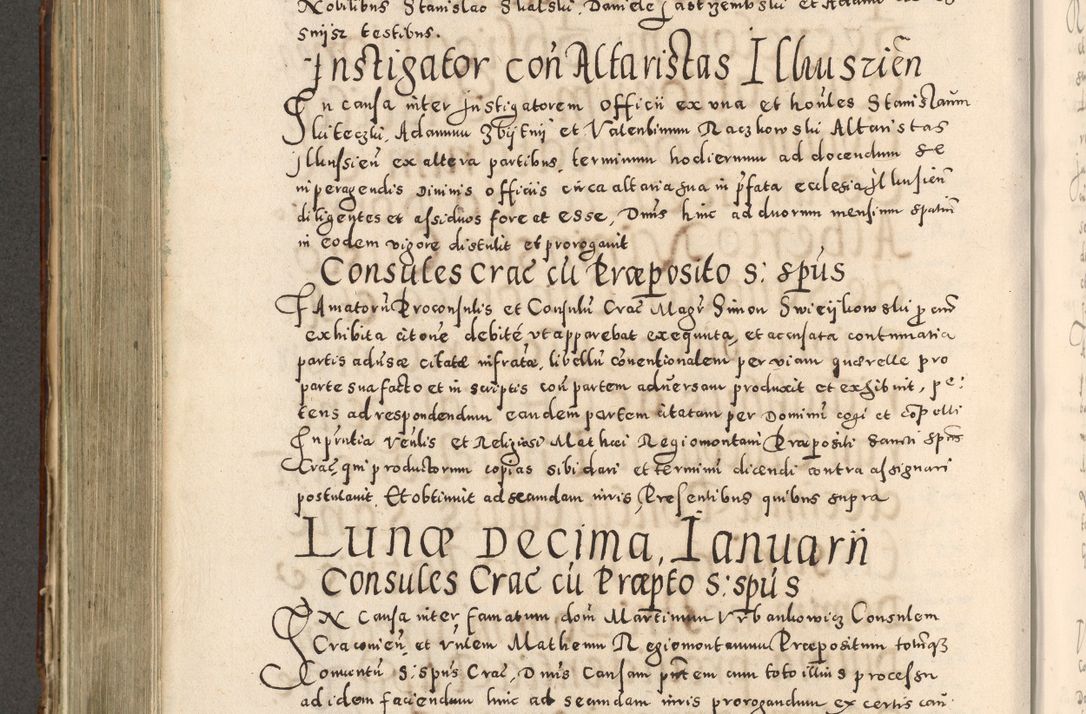 Nobilibus Stanislao Skalski, Daniele Jastrzembski et Adamo
snijsz testibus.
Instigator coñ Altaristas Illkuszieñ
In causa inter Instigatorem officii ex una et hoñles Stanislaum
Skiteczki, Adamum Zbijtnij et Valentinum Raczkowski Altaristas
Jlkussieñ ex altera partibus, terminum hodiernum ad docendum se
in peragendis Divinis officiis circa altaria sua in pfata ecclesia Jlkusieñ
diligentes et assiduos fore et esse, Dnus hinc ad duorum mensium spatiũ
in eodem vigore distulit et prorogavit
Consules Crac cũ Præposito S: spũs
Famatorũ Proconsulis et Consulũ Crac Magr Simon Swieijkowski p cuius
exhibita citone debité, ut apparebat exequuta, et accusata contumatia
partis adusæ citatæ infratæ, libellũ conventionalem per viam quærelle pro
parte sua facto et in scriptis coñ partem adversam produxit et exhibuit, pe:
tens ad respondendum eandem partem citatam per Dominũ cogi et copelli
In pñtia Veñlis et Religiosi Mathæi Regiomontani Præpositi Sancti Spũs
Crac, qui productorum copias sibi dari et terminũ dicendi contra assignari
postulavit. Et obtinuit ad secundam iuris, Presentibus quibus supra
Lunæ Decima, Ianuarii
Consules Crac cũ Præpto S: spũs
In Causa inter Famatum dom Martinum Urbankowicz Consulem
Cracovieñ et Vñlem Matheum Regiomontanum Præpositum totumq
Conventũ S: Spũs Crac, Dnus Causam pñtem cum toto illius processu
ad idem faciendum hinc ad secundam iuris prorogandum ex certis cau